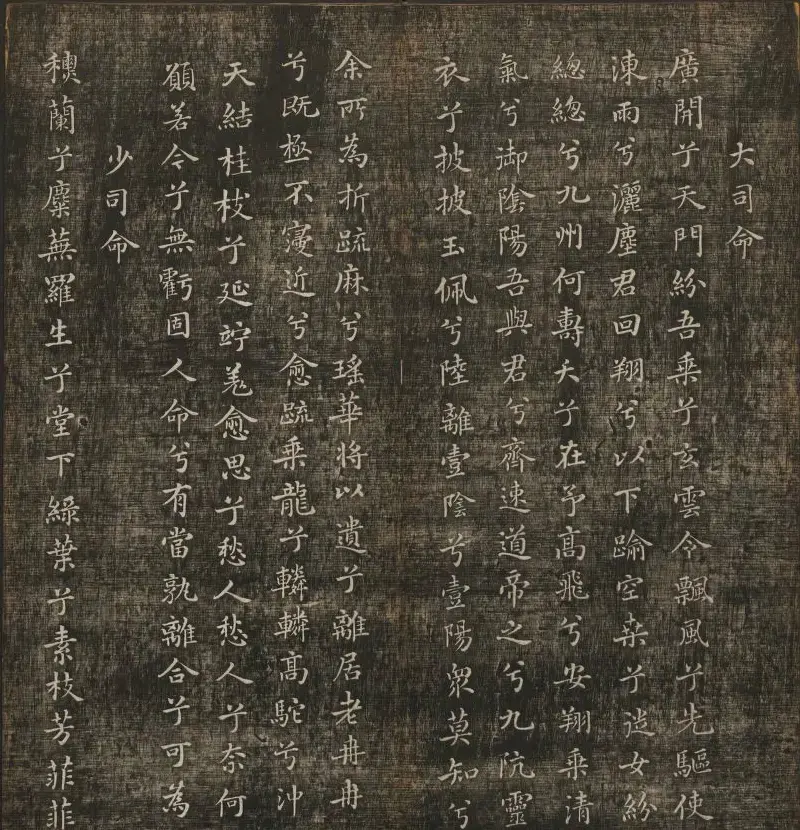 大司命
廣開兮天門紛吾乗兮玄雲令飄風兮先驅使
涷雨兮灑塵君回翔兮以下踰空桒兮從女紛
總總兮九州何壽夭兮在予髙飛兮安翔乗清
氣兮御陰陽吾與君兮齊速道帝之兮九阬靈
衣兮披披玉佩兮陸離壹陰兮壹陽衆莫知兮
余所為折疏麻兮瑶華將以遺兮離居老冉冉
兮既極不寖近兮愈疏乗龍兮轔轔髙駝兮沖
天結桂枝兮延竚羌愈思兮愁人愁人兮奈何
願若今兮無虧固人命兮有當孰離合兮可為
少司命
秋蘭兮麋蕪羅生兮堂下綠葉兮素枝芳菲菲